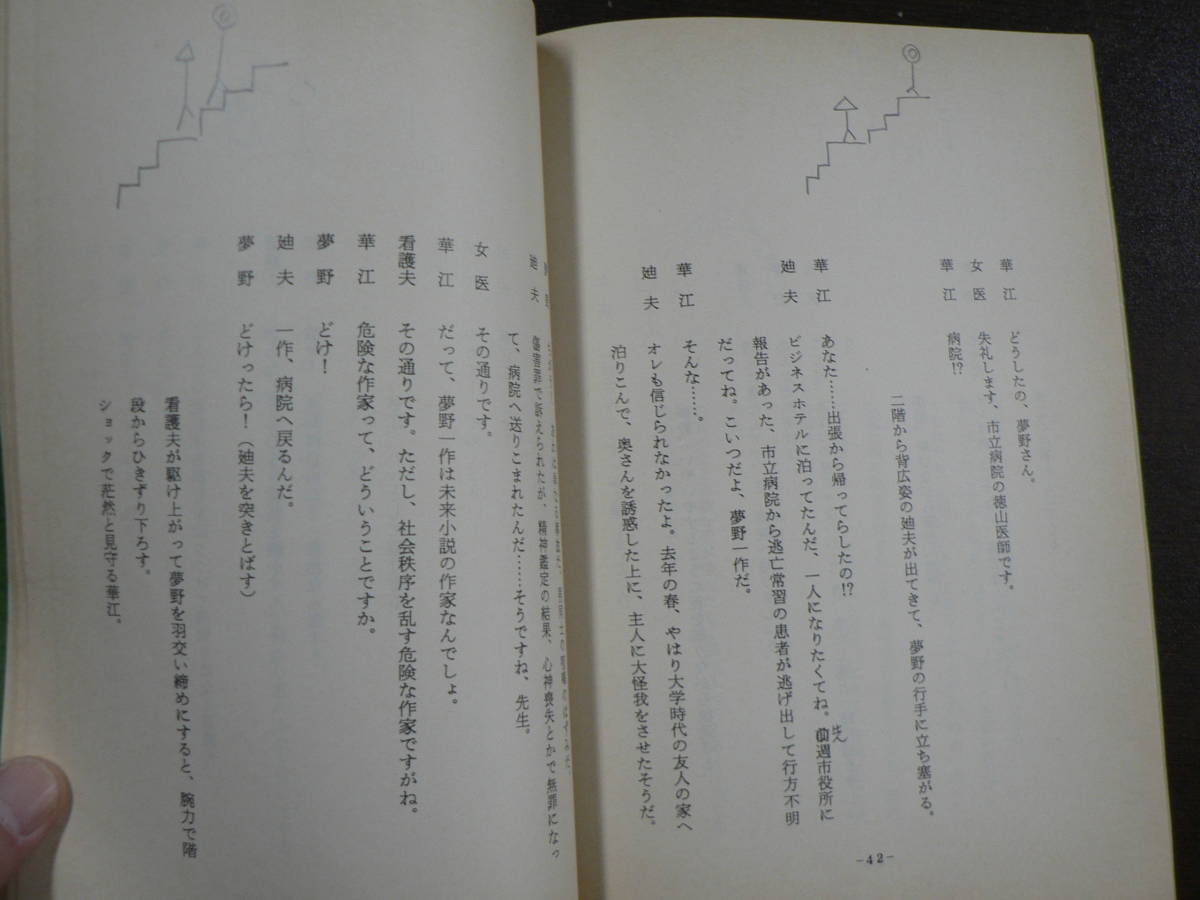 華江　どうしたの、夢野さん。
女医　失礼します、市立病院の徳山医師です。
華江　病院!?
二階から背広姿の廸夫が出てきて、夢野の行手に立ち塞がる。
華江　あなた……出張から帰ってらしたの!?
廸夫　ビジネスホテルに泊ってたんだ、一人になりたくてね。先週市役所に
報告があった、市立病院から逃亡常習の患者が逃げ出して行方不明
だってね。こいつだよ、夢野一作だ。
華江　そんな……。
廸夫　オレも信じられなかったよ。去年の春、やはり大学時代の友人の家へ
泊りこんで、奥さんを誘惑した上に、主人に大怪我をさせたそうだ。
-42-
廸夫　傷害罪で訴えられたが、精神鑑定の結果、心神喪失とかで無罪になっ
て、病院へ送りこまれたんだ……そうですね、先生。
女医　その通りです。
華江　だって、夢野一作は未来小説の作家なんでしょ。
看護夫　その通りです。ただし、社会秩序を乱す危険な作家ですがね。
華江　危険な作家って、どういうことですか。
夢野　どけ！
廸夫　一作、病院へ戻るんだ。
夢野　どけったら！（廸夫を突きとばす）
看護夫が駆け上がって夢野を羽交い締めにすると、腕力で階
段からひきずり下ろす。
ショックで茫然と見守る華江。